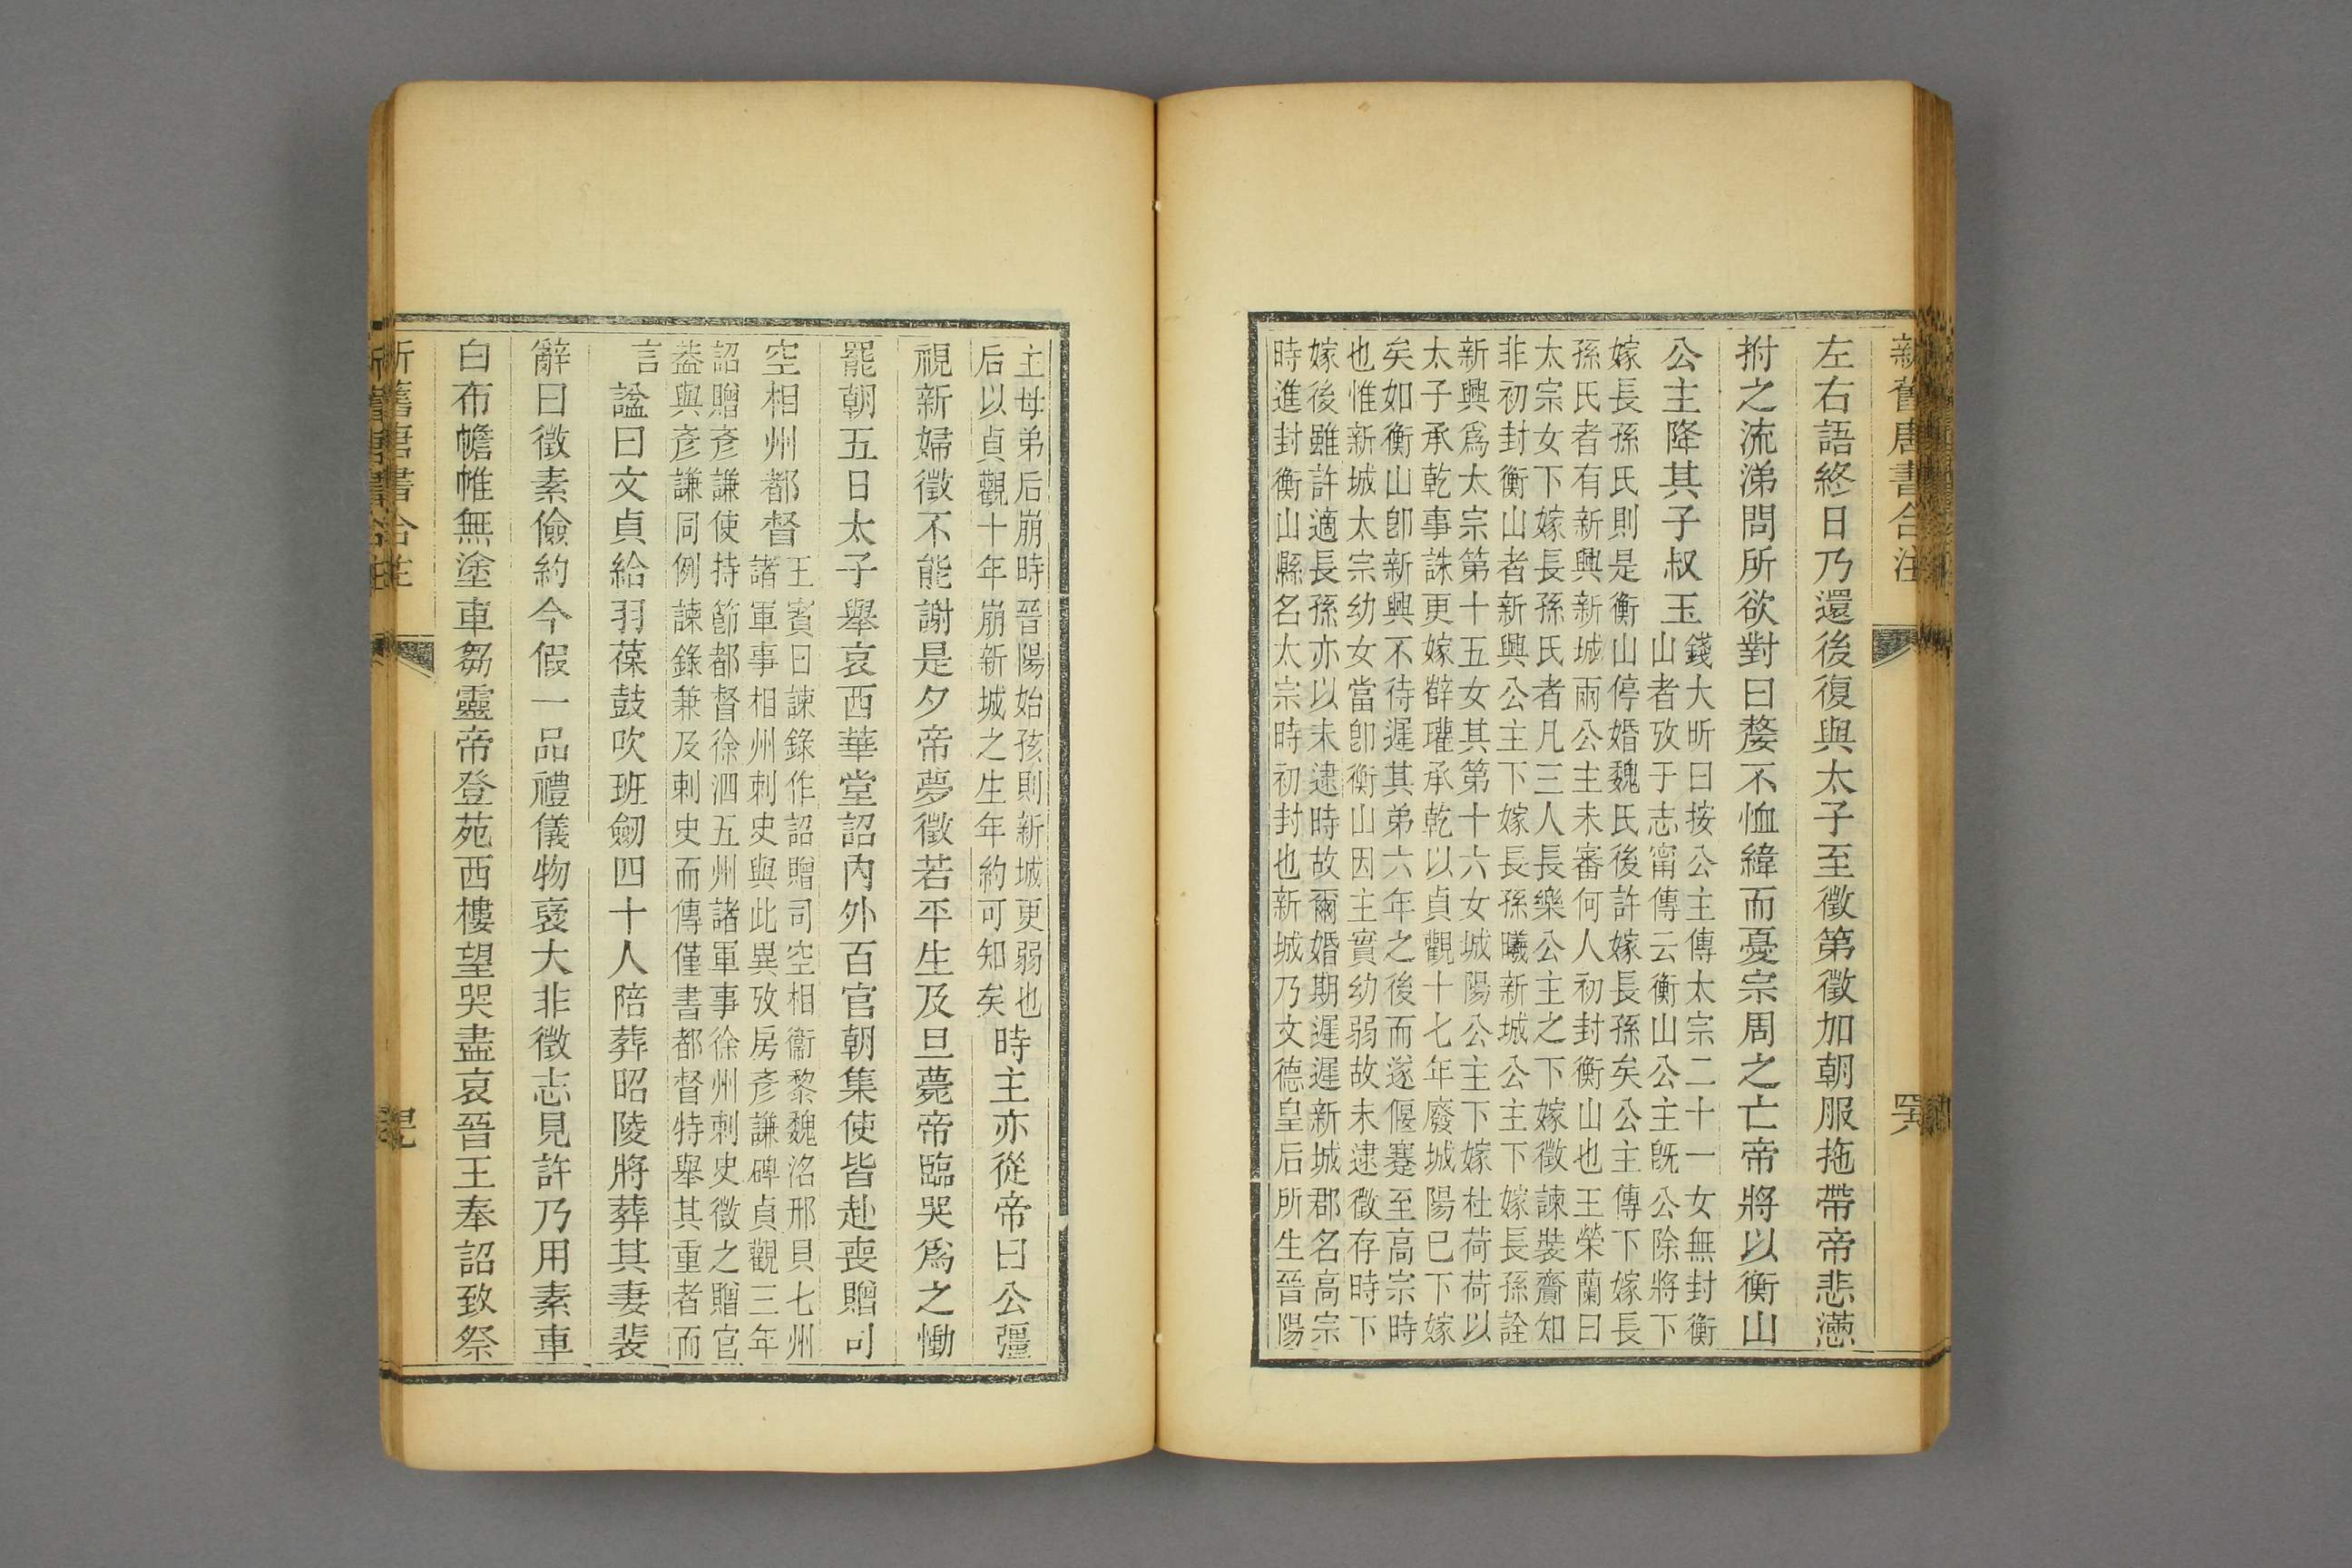 新舊唐書合注
左右語終日乃還後復與太子至徵第徵加朝服拖帶帝悲懣
拊之流涕問所欲對曰嫠不恤緯而憂宗周之亡帝將以衡山
公主降其子叔玉
錢大昕曰按公主傳太宗二十一女無封衡
山者攷于志甯傳云衡山公主旣公除將下
嫁長孫氏則是衡山停婚魏氏後許嫁長孫矣公主傳下嫁長
孫氏者有新興新城兩公主未審何人初封衡山也王榮蘭曰
太宗女下嫁長孫氏者凡三人長樂公主之下嫁徵諫裝齎知
非初封衡山者新興公主下嫁長孫曦新城公主下嫁長孫詮
新興爲太宗第十五女其第十六女城陽公主下嫁杜荷荷以
太子承乾事誅更嫁薛瓘承乾以貞觀十七年廢城陽已下嫁
矣如衡山卽新興不待遲其弟六年之後而遂偃蹇至高宗時
也惟新城太宗幼女當卽衡山因主實幼弱故未逮徵存時下
嫁後雖許適長孫亦以未逮時故爾婚期遲遲新城郡名高宗
時進封衡山縣名太宗時初封也新城乃文德皇后所生晉陽
主母弟后崩時晉陽始孩則新城更弱也
后以貞觀十年崩新城之生年約可知矣
時主亦從帝曰公彊
視新婦徵不能謝是夕帝夢徵若平生及旦薨帝臨哭爲之慟
罷朝五日太子舉哀西華堂詔內外百官朝集使皆赴喪贈司
空相州都督
王賓曰諫錄作詔贈司空相衞黎魏洺邢貝七州
諸軍事相州刺史與此異攷房彥謙碑貞觀三年
詔贈彥謙使持節都督徐泗五州諸軍事徐州刺史徵之贈官
葢與彥謙同例諫錄兼及刺史而傳僅書都督特舉其重者而
言
諡曰文貞給羽葆鼓吹班劒四十人陪葬昭陵將葬其妻裴
辭曰徵素儉約今假一品禮儀物裦大非徵志見許乃用素車
白布幨帷無塗車芻靈帝登苑西樓望哭盡哀晉王奉詔致祭
新舊唐書合注